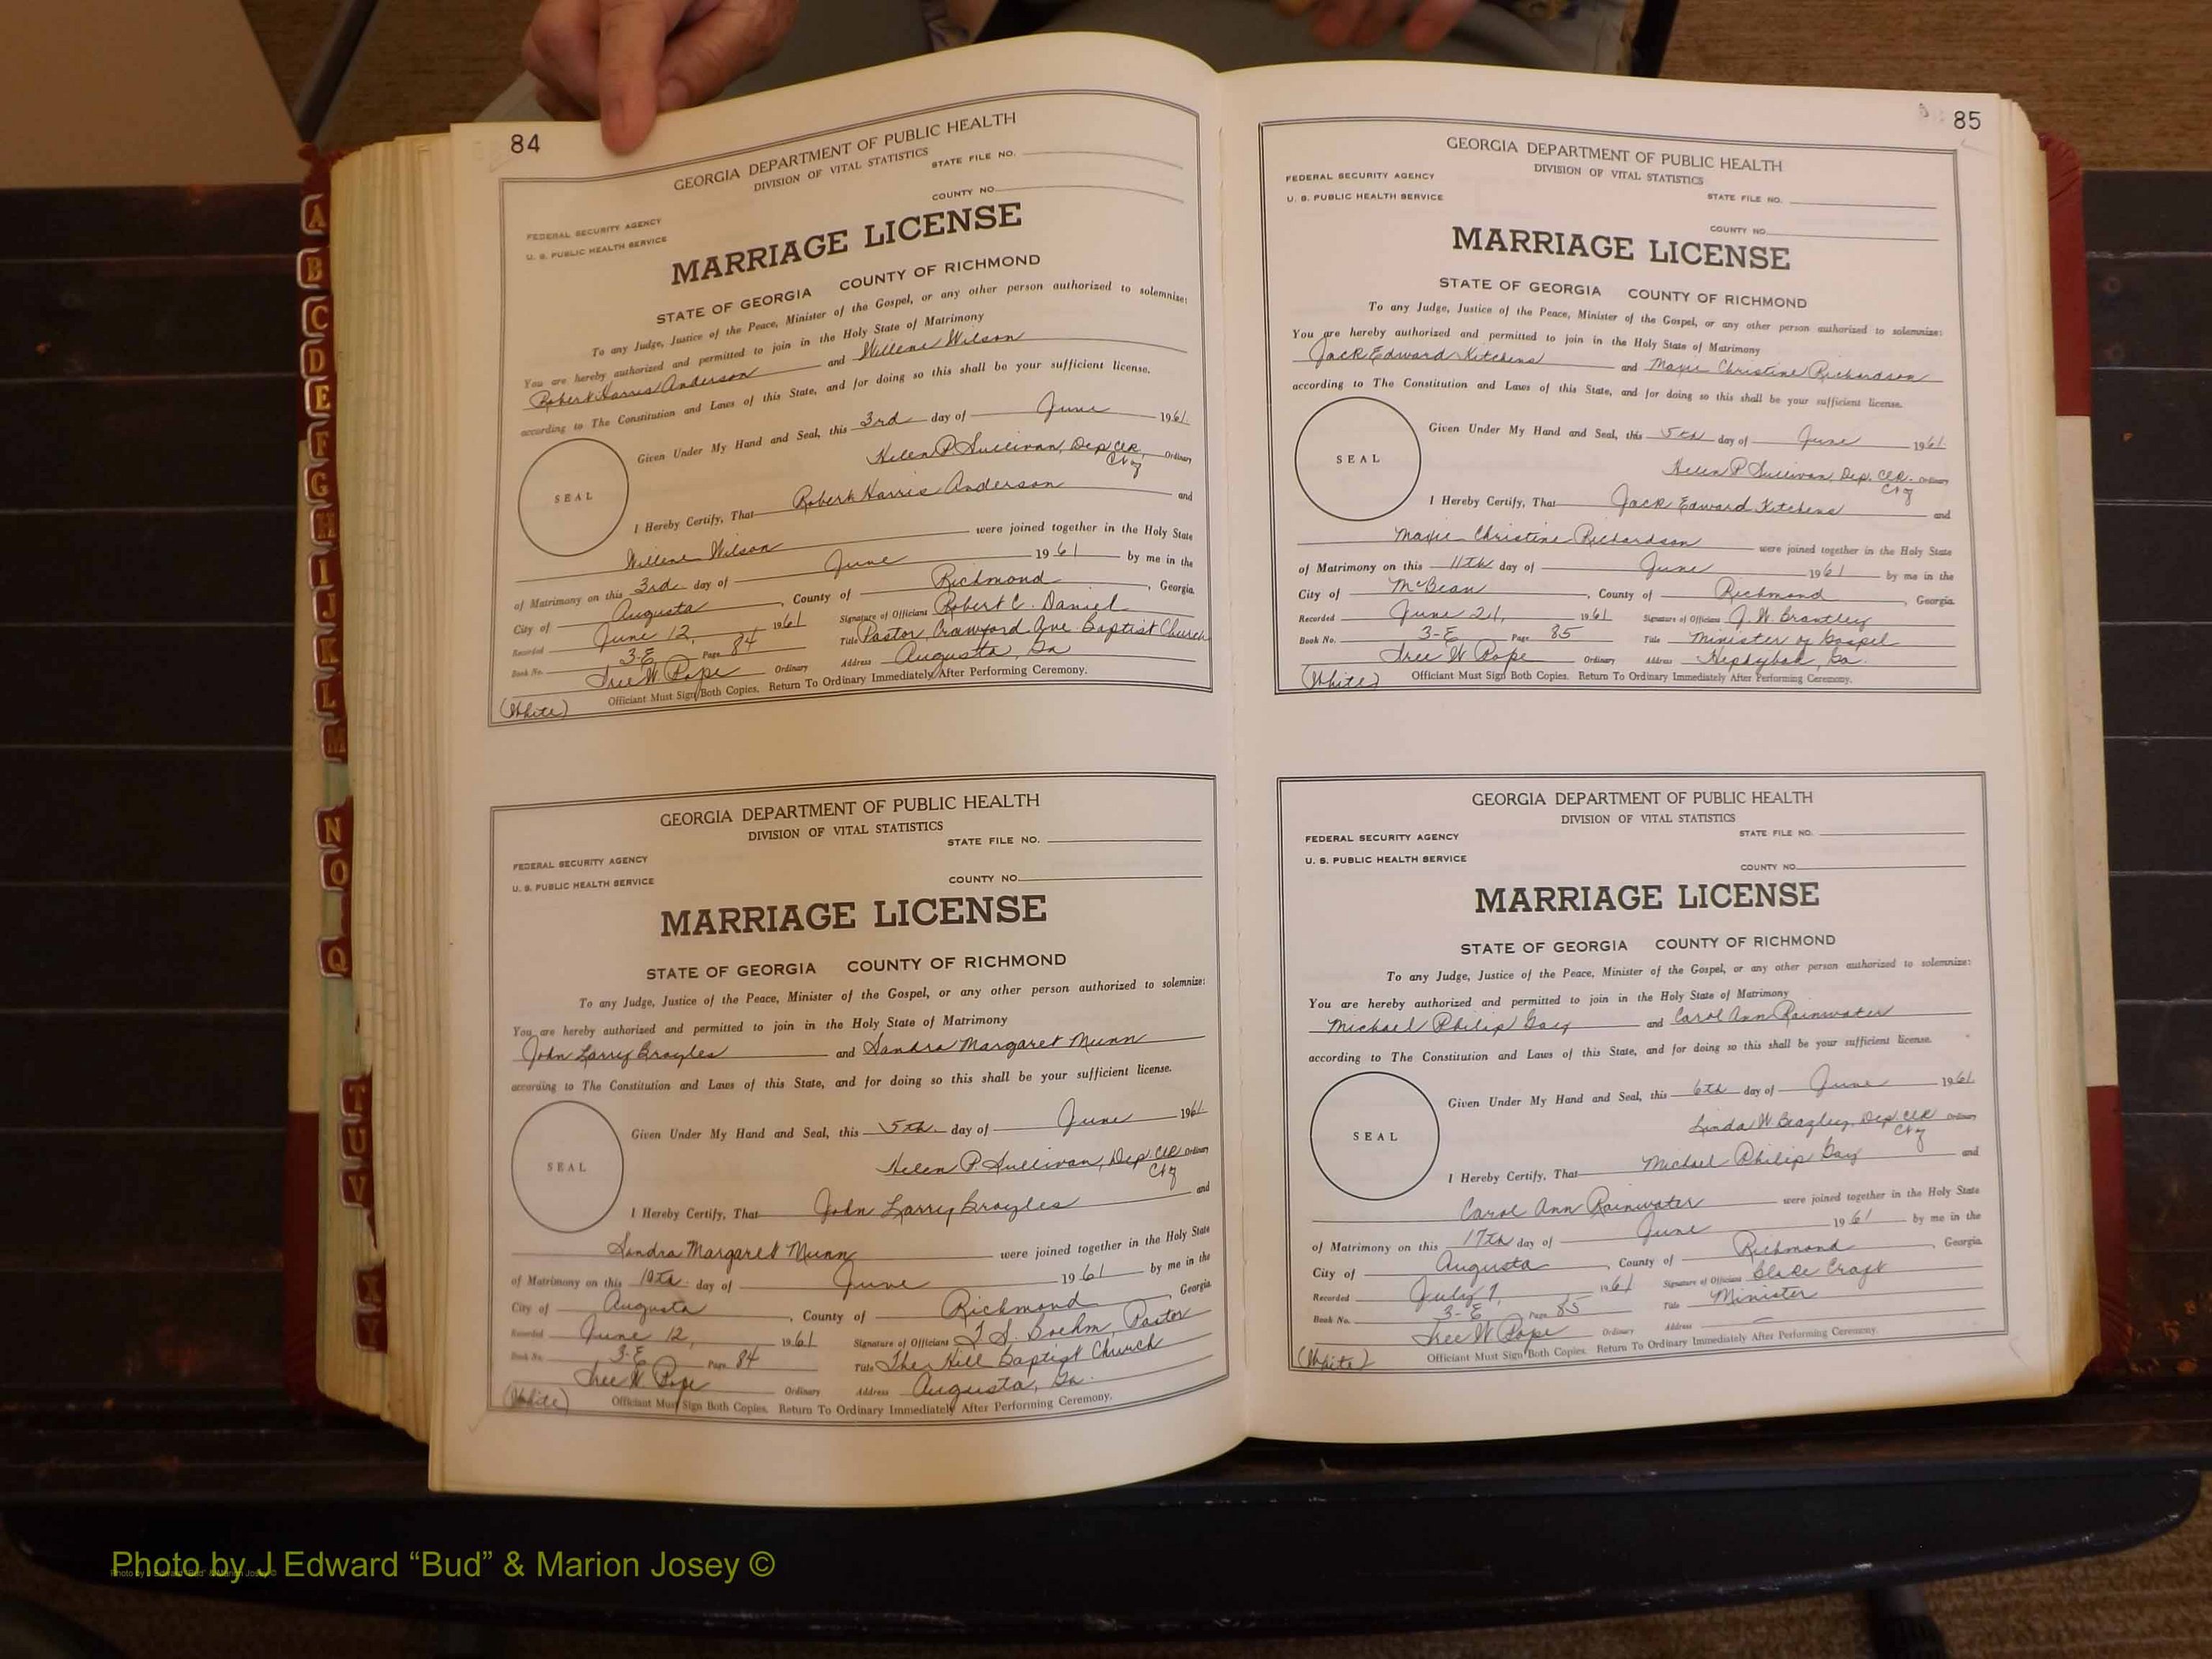 84
GEORGIA DEPARTMENT OF PUBLIC HEALTH
DIVISION OF VITAL STATISTICS
STATE FILE NO.
COUNTY NO.
FEDERAL SECURITY AGENCY
U. S. PUBLIC HEALTH SERVICE
MARRIAGE LICENSE
STATE OF GEORGIA COUNTY OF RICHMOND
To any Judge, Justice of the Peace, Minister of the Gospel, or any other person authorized to solemnize:
You are hereby authorized and permitted to join in the Holy State of Matrimony
Robert Harris Anderson and Willene Wilson
according to The Constitution and Laws of this State, and for doing so this shall be your sufficient license.
Given Under My Hand and Seal, this 3rd day of June 1961
Helen P Sullivan, Dep. Clk. Ordinary
SEAL
I Hereby Certify, That Robert Harris Anderson and
Willene Wilson were joined together in the Holy State
of Matrimony on this 3rd day of June 1961 by me in the
City of Augusta, County of Richmond, Georgia
Recorded June 12, 1961 Signature of Officiant Robert C. Daniel
Book No. 3-E Page 84 Title Pastor, Crawford Ave Baptist Church
Tree W. Pope Ordinary Address Augusta, Ga
(White) Officiant Must Sign Both Copies. Return To Ordinary Immediately After Performing Ceremony.
GEORGIA DEPARTMENT OF PUBLIC HEALTH
DIVISION OF VITAL STATISTICS
STATE FILE NO.
FEDERAL SECURITY AGENCY
U. S. PUBLIC HEALTH SERVICE
COUNTY NO.
MARRIAGE LICENSE
STATE OF GEORGIA COUNTY OF RICHMOND
To any Judge, Justice of the Peace, Minister of the Gospel, or any other person authorized to solemnize:
You are hereby authorized and permitted to join in the Holy State of Matrimony
John Larry Broyles and Sandra Margaret Munn
according to The Constitution and Laws of this State, and for doing so this shall be your sufficient license.
Given Under My Hand and Seal, this 5th day of June 1961
Helen P Sullivan, Dep. Clk Ordinary
SEAL
I Hereby Certify, That John Larry Broyles and
Sandra Margaret Munn were joined together in the Holy State
of Matrimony on this 10th day of June 1961 by me in the
City of Augusta, County of Richmond, Georgia
Recorded June 12, 1961 Signature of Officiant T. S. Boehm, Pastor
Book No. 3-E Page 84 Title The Hill Baptist Church
Tree W. Pope Ordinary Address Augusta, Ga.
(White) Officiant Must Sign Both Copies. Return To Ordinary Immediately After Performing Ceremony.
85
GEORGIA DEPARTMENT OF PUBLIC HEALTH
DIVISION OF VITAL STATISTICS
FEDERAL SECURITY AGENCY
U. S. PUBLIC HEALTH SERVICE
STATE FILE NO.
COUNTY NO.
MARRIAGE LICENSE
STATE OF GEORGIA COUNTY OF RICHMOND
To any Judge, Justice of the Peace, Minister of the Gospel, or any other person authorized to solemnize:
You are hereby authorized and permitted to join in the Holy State of Matrimony
Jack Edward Kitchens and Maxie Christine Richardson
according to The Constitution and Laws of this State, and for doing so this shall be your sufficient license.
Given Under My Hand and Seal, this 5th day of June 1961
Helen P Sullivan, Dep. Clk. Ordinary
SEAL
I Hereby Certify, That Jack Edward Kitchens and
Maxie Christine Richardson were joined together in the Holy State
of Matrimony on this 11th day of June 1961 by me in the
City of McBean, County of Richmond, Georgia
Recorded June 21, 1961 Signature of Officiant J. W. Brantley
Book No. 3-E Page 85 Title Minister of Gospel
Tree W Pope Ordinary Address Hephzibah, Ga.
(White) Officiant Must Sign Both Copies. Return To Ordinary Immediately After Performing Ceremony.
GEORGIA DEPARTMENT OF PUBLIC HEALTH
DIVISION OF VITAL STATISTICS
STATE FILE NO.
FEDERAL SECURITY AGENCY
U. S. PUBLIC HEALTH SERVICE
COUNTY NO.
MARRIAGE LICENSE
STATE OF GEORGIA COUNTY OF RICHMOND
To any Judge, Justice of the Peace, Minister of the Gospel, or any other person authorized to solemnize:
You are hereby authorized and permitted to join in the Holy State of Matrimony
Michael Philip Gay and Carol Ann Rainwater
according to The Constitution and Laws of this State, and for doing so this shall be your sufficient license.
Given Under My Hand and Seal, this 6th day of June 1961
Linda W Beazley, Dep. Clk Ordinary
SEAL
I Hereby Certify, That Michael Philip Gay and
Carol Ann Rainwater were joined together in the Holy State
of Matrimony on this 17th day of June 1961 by me in the
City of Augusta, County of Richmond, Georgia
Recorded July 7, 1961 Signature of Officiant Craft
Book No. 3-E Page 85 Title Minister
Tree W Pope Ordinary Address
(White) Officiant Must Sign Both Copies. Return To Ordinary Immediately After Performing Ceremony.
A
B
C
D
E
F
G
H
I
J
K
L
M
N
O
Q
T
U
V
X
Y
Photo by J Edward “Bud” & Marion Josey ©
Photo by J Edward “Bud” & Marion Josey ©